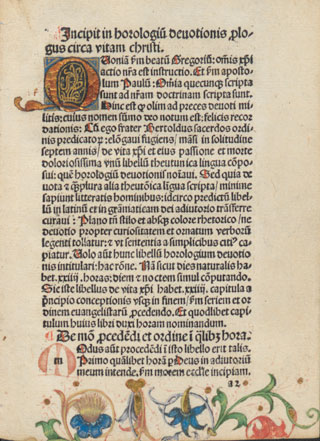 Incipit in horologiū deuotionis ꝓlo-
gus circa vitam christi.
Quoniā ẜm beatū Gregoriū: om̄is xp̄i
actio nr̄a est instructio. Et ẜm aposto-
lum Paulū: Om̄ia quecunqꝫ scripta
sunt ad nr̄am doctrinam scripta sunt.
Hinc est ꝙ olim ad preces deuoti mi-
litis: cuius nomen sūmo deo notum est: felicis recor
dationis: Cū ego frater Bertoldus sacerdos ordi-
nis predicatoꝝ: elōgaui fugiens/ māsi in solitudine
septem annis/ de vita xp̄i et eius passione et morte
dolorosissima vnū libellū theutunica lingua cōpo-
sui: quē horologiū deuotionis noīaui. Sed quia de
uota et plura alia theutōica līgua scripta/ minime
sapiunt litteratis hominibus: idcirco predictū libel-
lū in latinū et in grāmaticam dei adiutorio trāsferre
curaui: Plano tn̄ stilo et absqꝫ colore rhetorico/ ne
deuotio propter curiositatem et ornatum verborū
legenti tollatur: et vt sententia a simplicibus etiā ca-
piatur. Volo aūt hunc libellū horologium deuotio
nis intitulari: hac rōne. Nā sicut dies naturalis ha-
bet .xxiiij. horas: diem et noctem simul cōputando.
Sic iste libellus de vita xp̄i habet .xxiiij. capitula a
principio conceptionis vsqꝫ in finem/ ẜm seriem et or
dinem euangelistarū ꝓcedendo. Et quodlibet capi-
tulum huius libri duxi horam nominandum.
De mō ꝓcedēdi et ordine ī qͥlibꝫ hora
Modus aūt procedēdi ī isto libello erit talis.
Primo qualibet horā ꝑ Deus in adiutoriū
meum intende/ ẜm morem eccl̄ie incipiam.
a2